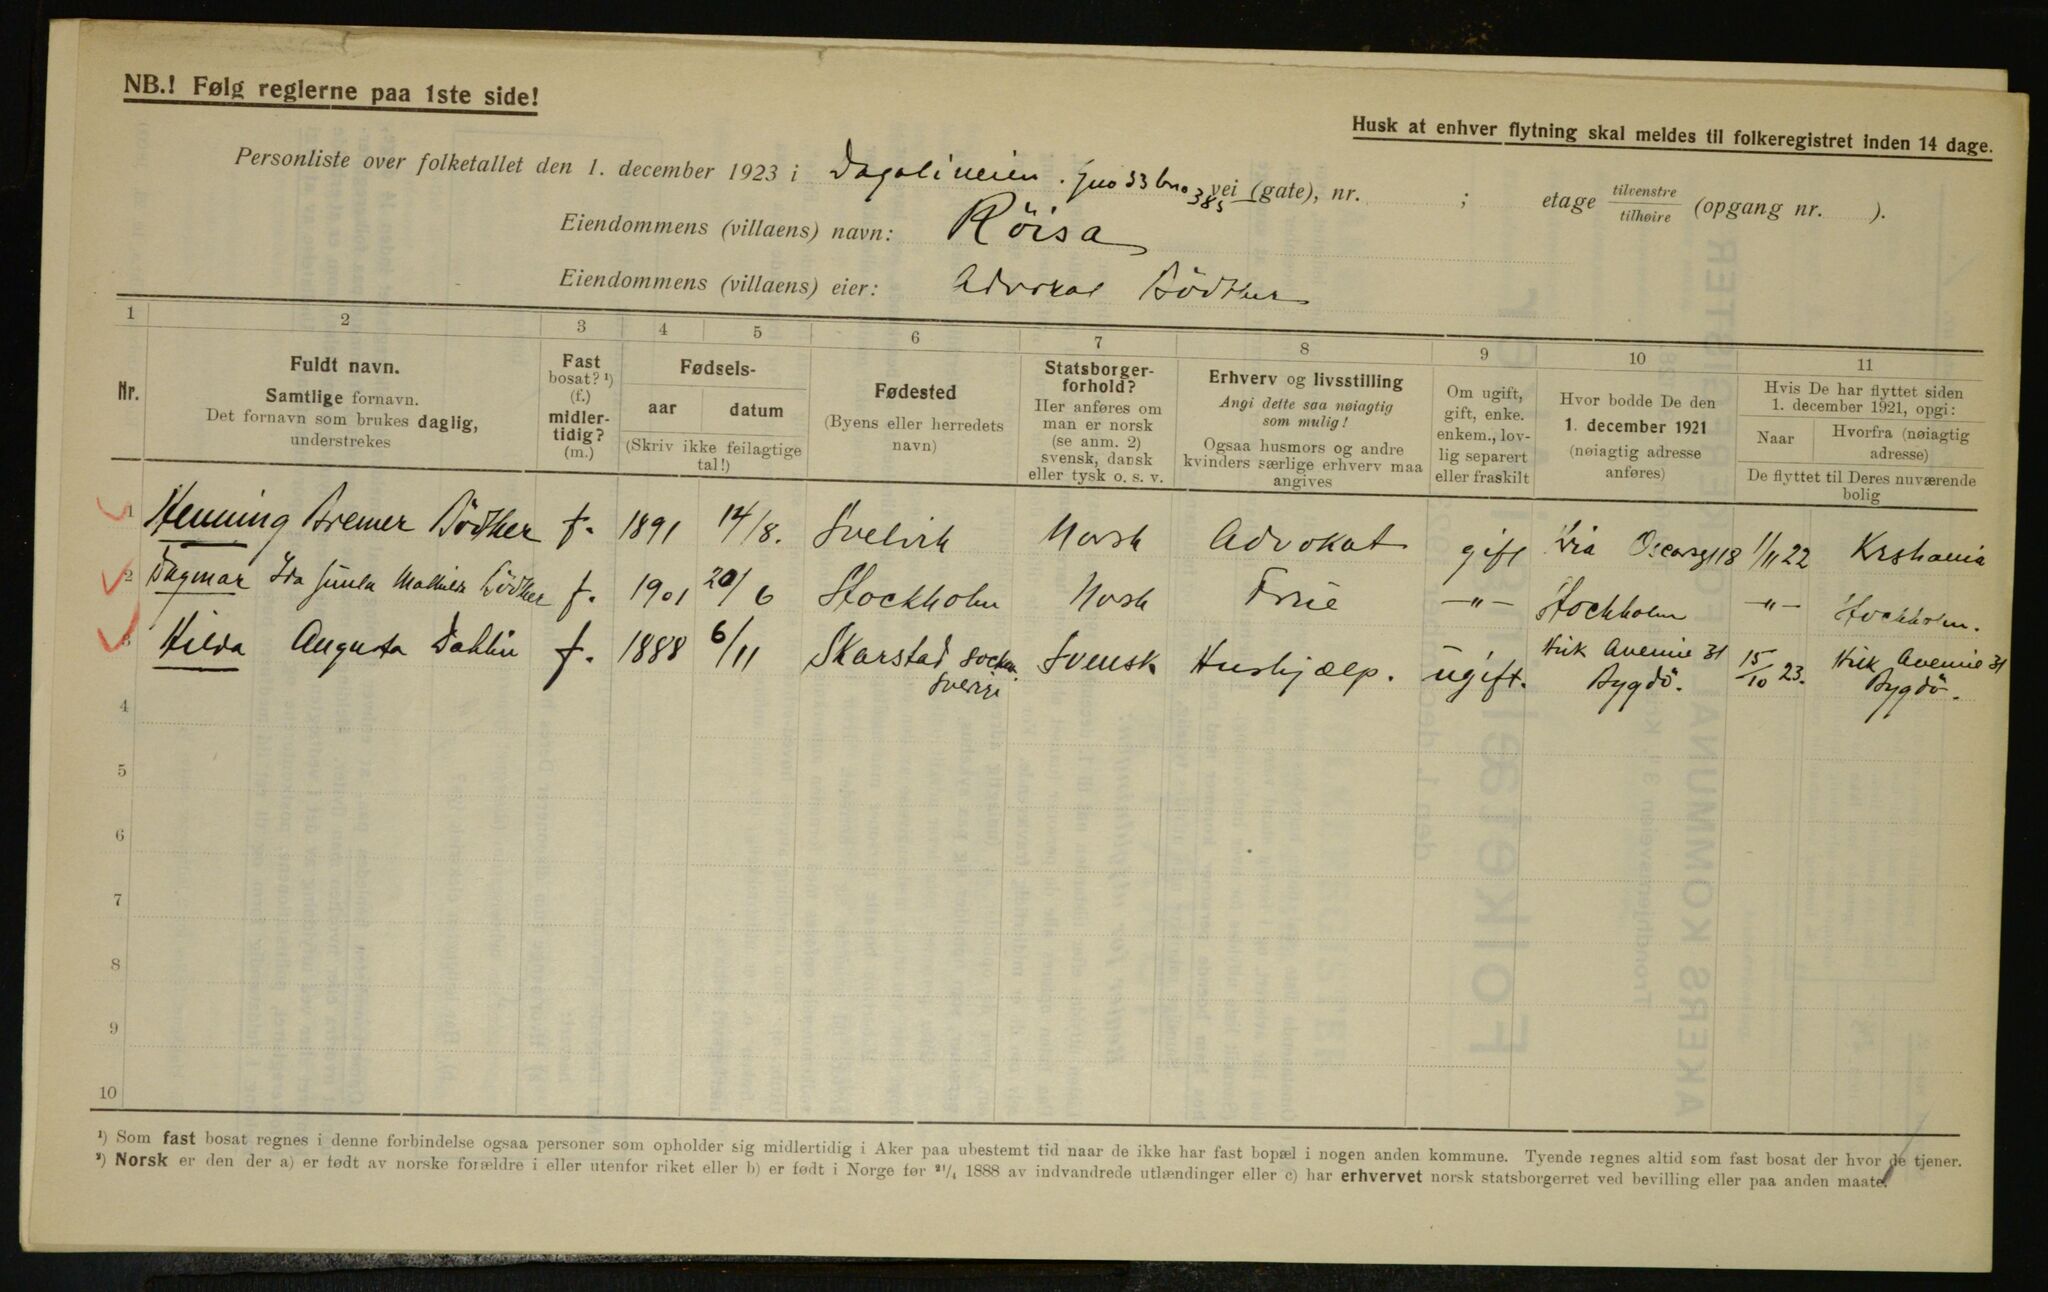 NB.! Følg reglerne paa 1ste side!
Husk at enhver flytning skal meldes til folkeregistret inden 14 dage.
Personliste over folketallet den 1. december 1923 i Dagaliveien. gno 33 bno 385 vei (gate), nr. ; etage tilvenstre/tilhøire (opgang nr. ).
Eiendommens (villaens) navn: Röisa
Eiendommens (villaens) eier: Advokat Bödtker
1 2 3 4 5 6 7 8 9 10 11
Nr.
Fuldt navn.
Samtlige fornavn.
Det fornavn som brukes daglig,
understrekes
Fast
bosat? ¹)
(f.)
midler-
tidig?
(m.)
Fødsels-
aar datum
(Skriv ikke feilagtige
tal!)
Fødested
(Byens eller herredets
navn)
Statsborger-
forhold?
Her anføres om
man er norsk
(se anm. 2)
svensk, dansk
eller tysk o. s. v.
Erhverv og livsstilling
Angi dette saa nøiagtig
som mulig!
Ogsaa husmors og andre
kvinders særlige erhverv maa
angives
Om ugift,
gift, enke.
enkem., lov-
lig separert
eller fraskilt
Hvor bodde De den
1. december 1921
(nøiagtig adresse
anføres)
Hvis De har flyttet siden
1. december 1921, opgi:
Naar
Hvorfra (nøiagtig
adresse)
De flyttet til Deres nuværende
bolig
1 Henning Bremer Bödtker f. 1891 14/8. Svelvik Norsk Advokat gift Kria Oscarsg 18 1/11 22 Krshania
2 Dagmar Ida Mathilda Bödtker f. 1901 20/6 Stockholm Norsk Frue —"— Stockholm —"— Stockholm.
3 Hilda Augusta Dahlin f. 1888 6/11 Skarstad socken Sverige Svensk Hushjælp. ugift. Huk Avenue 31 Bygdö. 15/10 23. Huk Avenue 31 Bygdö.
4
5
6
7
8
9
10
¹) Som fast bosat regnes i denne forbindelse ogsaa personer som opholder sig midlertidig i Aker paa ubestemt tid naar de ikke har fast bopæl i nogen anden kommune. Tyende regnes altid som fast bosat der hvor de tjener.
²) Norsk er den der a) er født av norske forældre i eller utenfor riket eller b) er født i Norge før ²¹/₄ 1888 av indvandrede utlændinger eller c) har erhvervet norsk statsborgerret ved bevilling eller paa anden maate.